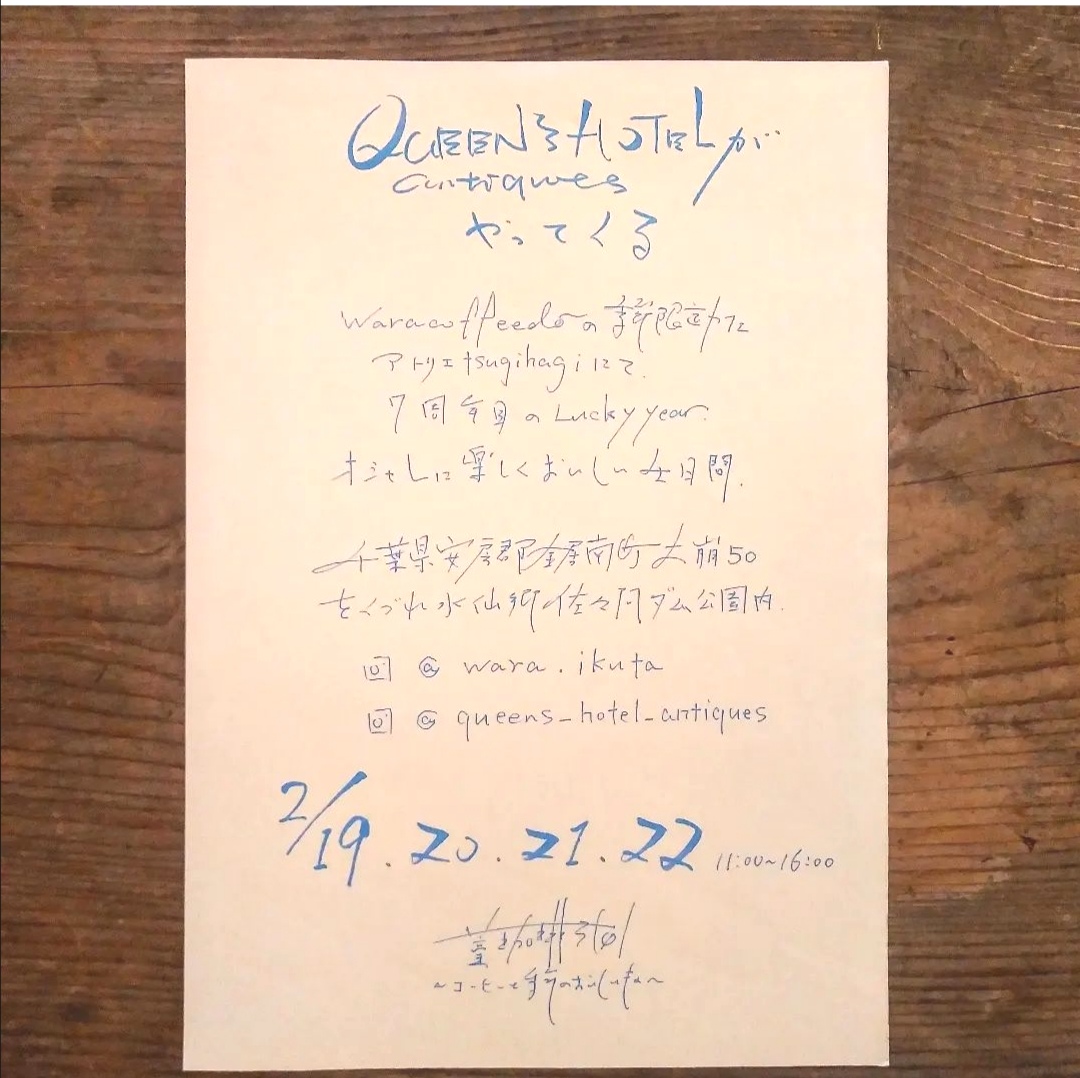 QUEEN'S HOTELが
antiques
やってくる
Waracoffeedoの季節限定カフェ
アトリエtsugihagiにて.
7周年目のLucky year.
オシャレに楽しくおいしい4日間.
千葉県安房郡鋸南町大崩50
をくづれ水仙郷佐久間ダム公園内.
@ wara.ikuta
@ queens_hotel_antiques
2/19.20.21.22 11:00~16:00
~コーヒーと季節のおいしいもの~